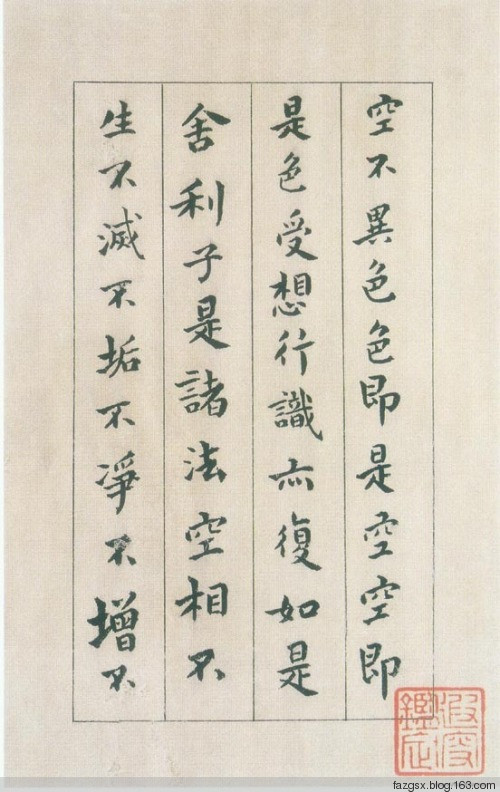 空不異色色即是空空即
是色受想行識亦復如是
舍利子是諸法空相不
生不滅不垢不淨不增不
fazgsx.blog.163.com